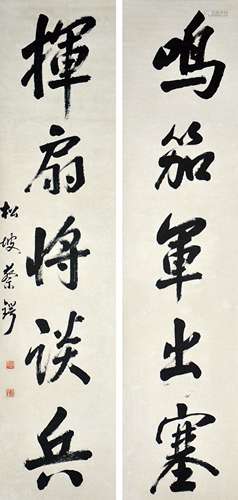 鳴笳軍出塞
揮扇將談兵
松坡蔡鍔